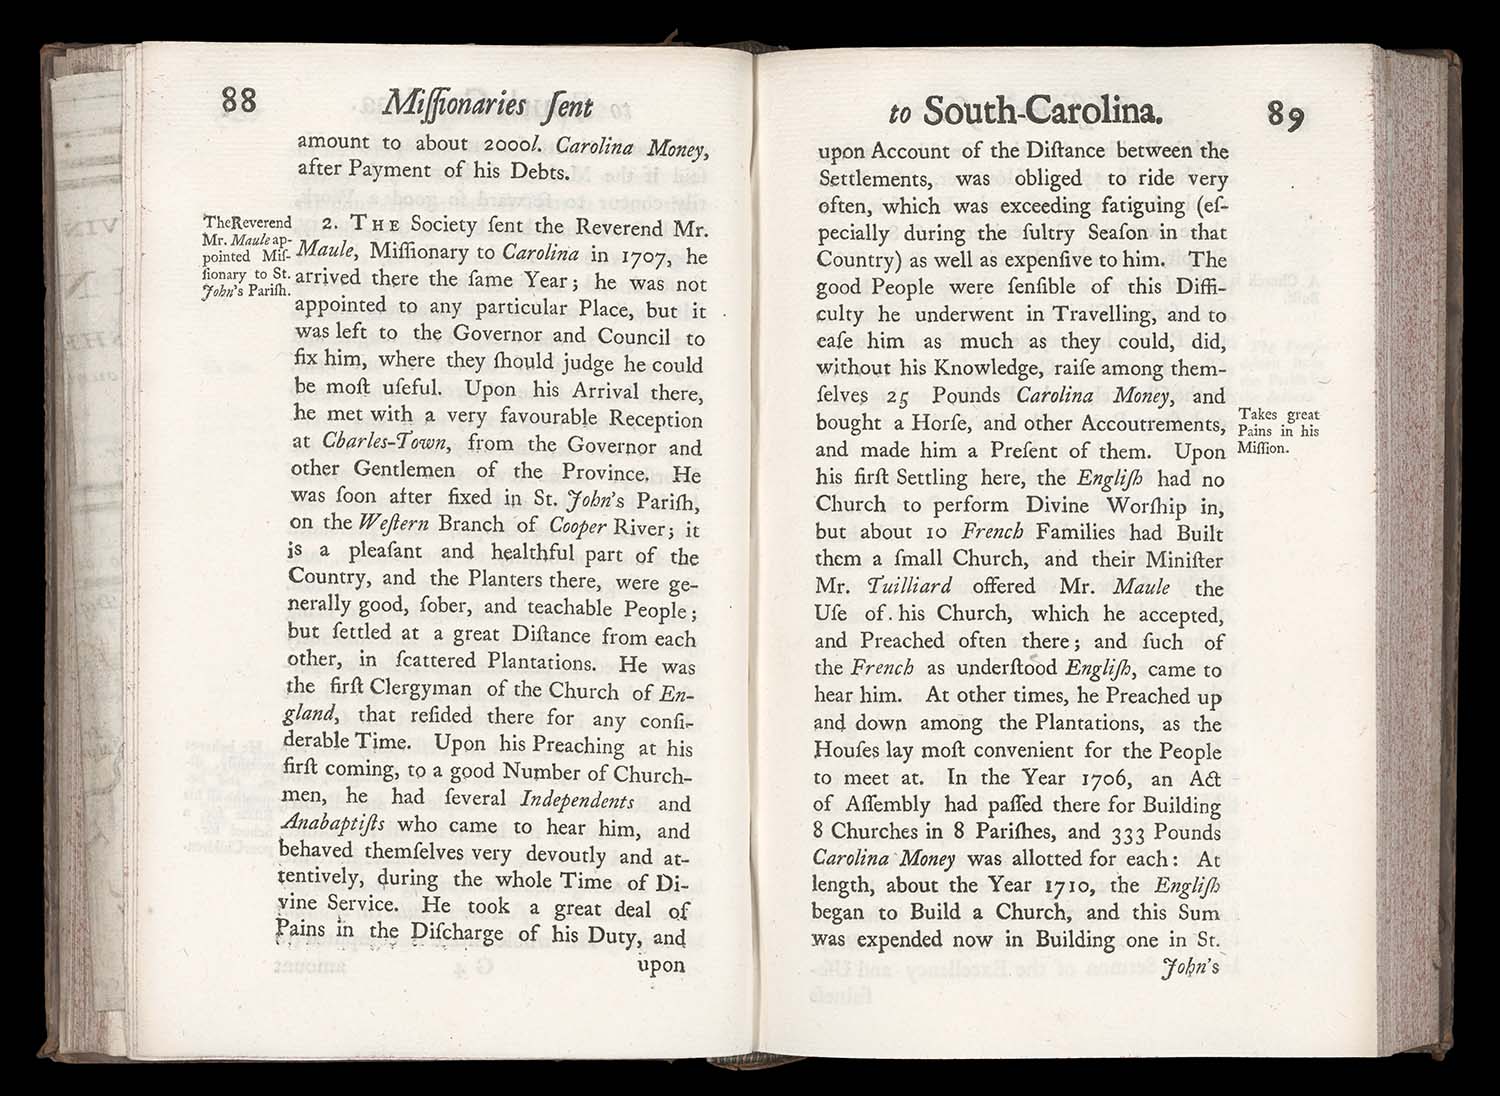 88
Miſſionaries ſent
amount to about 2000l. Carolina Money,
after Payment of his Debts.
TheReverend
Mr. Maule ap-
pointed Miſ-
ſionary to St.
John's Pariſh.
2. THE Society ſent the Reverend Mr.
Maule, Miſſionary to Carolina in 1707, he
arrived there the ſame Year; he was not
appointed to any particular Place, but it
was left to the Governor and Council to
fix him, where they ſhould judge he could
be moſt uſeful. Upon his Arrival there,
he met with a very favourable Reception
at Charles-Town, from the Governor and
other Gentlemen of the Province. He
was ſoon after fixed in St. John's Pariſh,
on the Weſtern Branch of Cooper River; it
is a pleaſant and healthful part of the
Country, and the Planters there, were ge-
nerally good, ſober, and teachable People;
but ſettled at a great Diſtance from each
other, in ſcattered Plantations. He was
the firſt Clergyman of the Church of En-
gland, that reſided there for any conſi-
derable Time. Upon his Preaching at his
firſt coming, to a good Number of Church-
men, he had ſeveral Independents and
Anabaptiſts who came to hear him, and
behaved themſelves very devoutly and at-
tentively, during the whole Time of Di-
vine Service. He took a great deal of
Pains in the Diſcharge of his Duty, and
upon
to South-Carolina.
89
upon Account of the Diſtance between the
Settlements, was obliged to ride very
often, which was exceeding fatiguing (eſ-
pecially during the ſultry Seaſon in that
Country) as well as expenſive to him. The
good People were ſenſible of this Diffi-
culty he underwent in Travelling, and to
eaſe him as much as they could, did,
without his Knowledge, raiſe among them-
ſelves 25 Pounds Carolina Money, and
bought a Horſe, and other Accoutrements,
and made him a Preſent of them. Upon
his firſt Settling here, the Engliſh had no
Church to perform Divine Worſhip in,
but about 10 French Families had Built
them a ſmall Church, and their Miniſter
Mr. Tuilliard offered Mr. Maule the
Uſe of his Church, which he accepted,
and Preached often there; and ſuch of
the French as underſtood Engliſh, came to
hear him. At other times, he Preached up
and down among the Plantations, as the
Houſes lay moſt convenient for the People
to meet at. In the Year 1706, an Act
of Aſſembly had paſſed there for Building
8 Churches in 8 Pariſhes, and 333 Pounds
Carolina Money was allotted for each: At
length, about the Year 1710, the Engliſh
began to Build a Church, and this Sum
was expended now in Building one in St.
John's
Takes great
Pains in his
Miſſion.